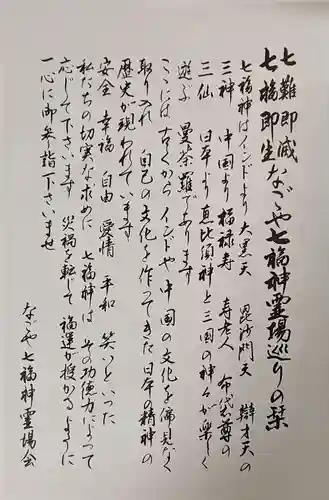 七難即滅
七福即生 なごや七福神霊場巡りの栞
七福神はインドより 大黒天 毘沙門天 辯才天の
三神 中国より 福禄寿 寿老人 布袋尊の
三仙 日本より 恵比須神と三国の神々が楽しく
遊ぶ 曼荼羅であります
ここには 古くから インドや中国の文化を偏見なく
取り入れ 自己の文化を作ってきた日本の精神の
歴史が現われています
安全 幸福 自由 愛情 平和 笑いといった
私たちの切実な求めに 七福神は その功徳力によって
応じて下さいます 災禍を転じて 福運が授かるように
一心に御参詣下さいませ
なごや七福神霊場会